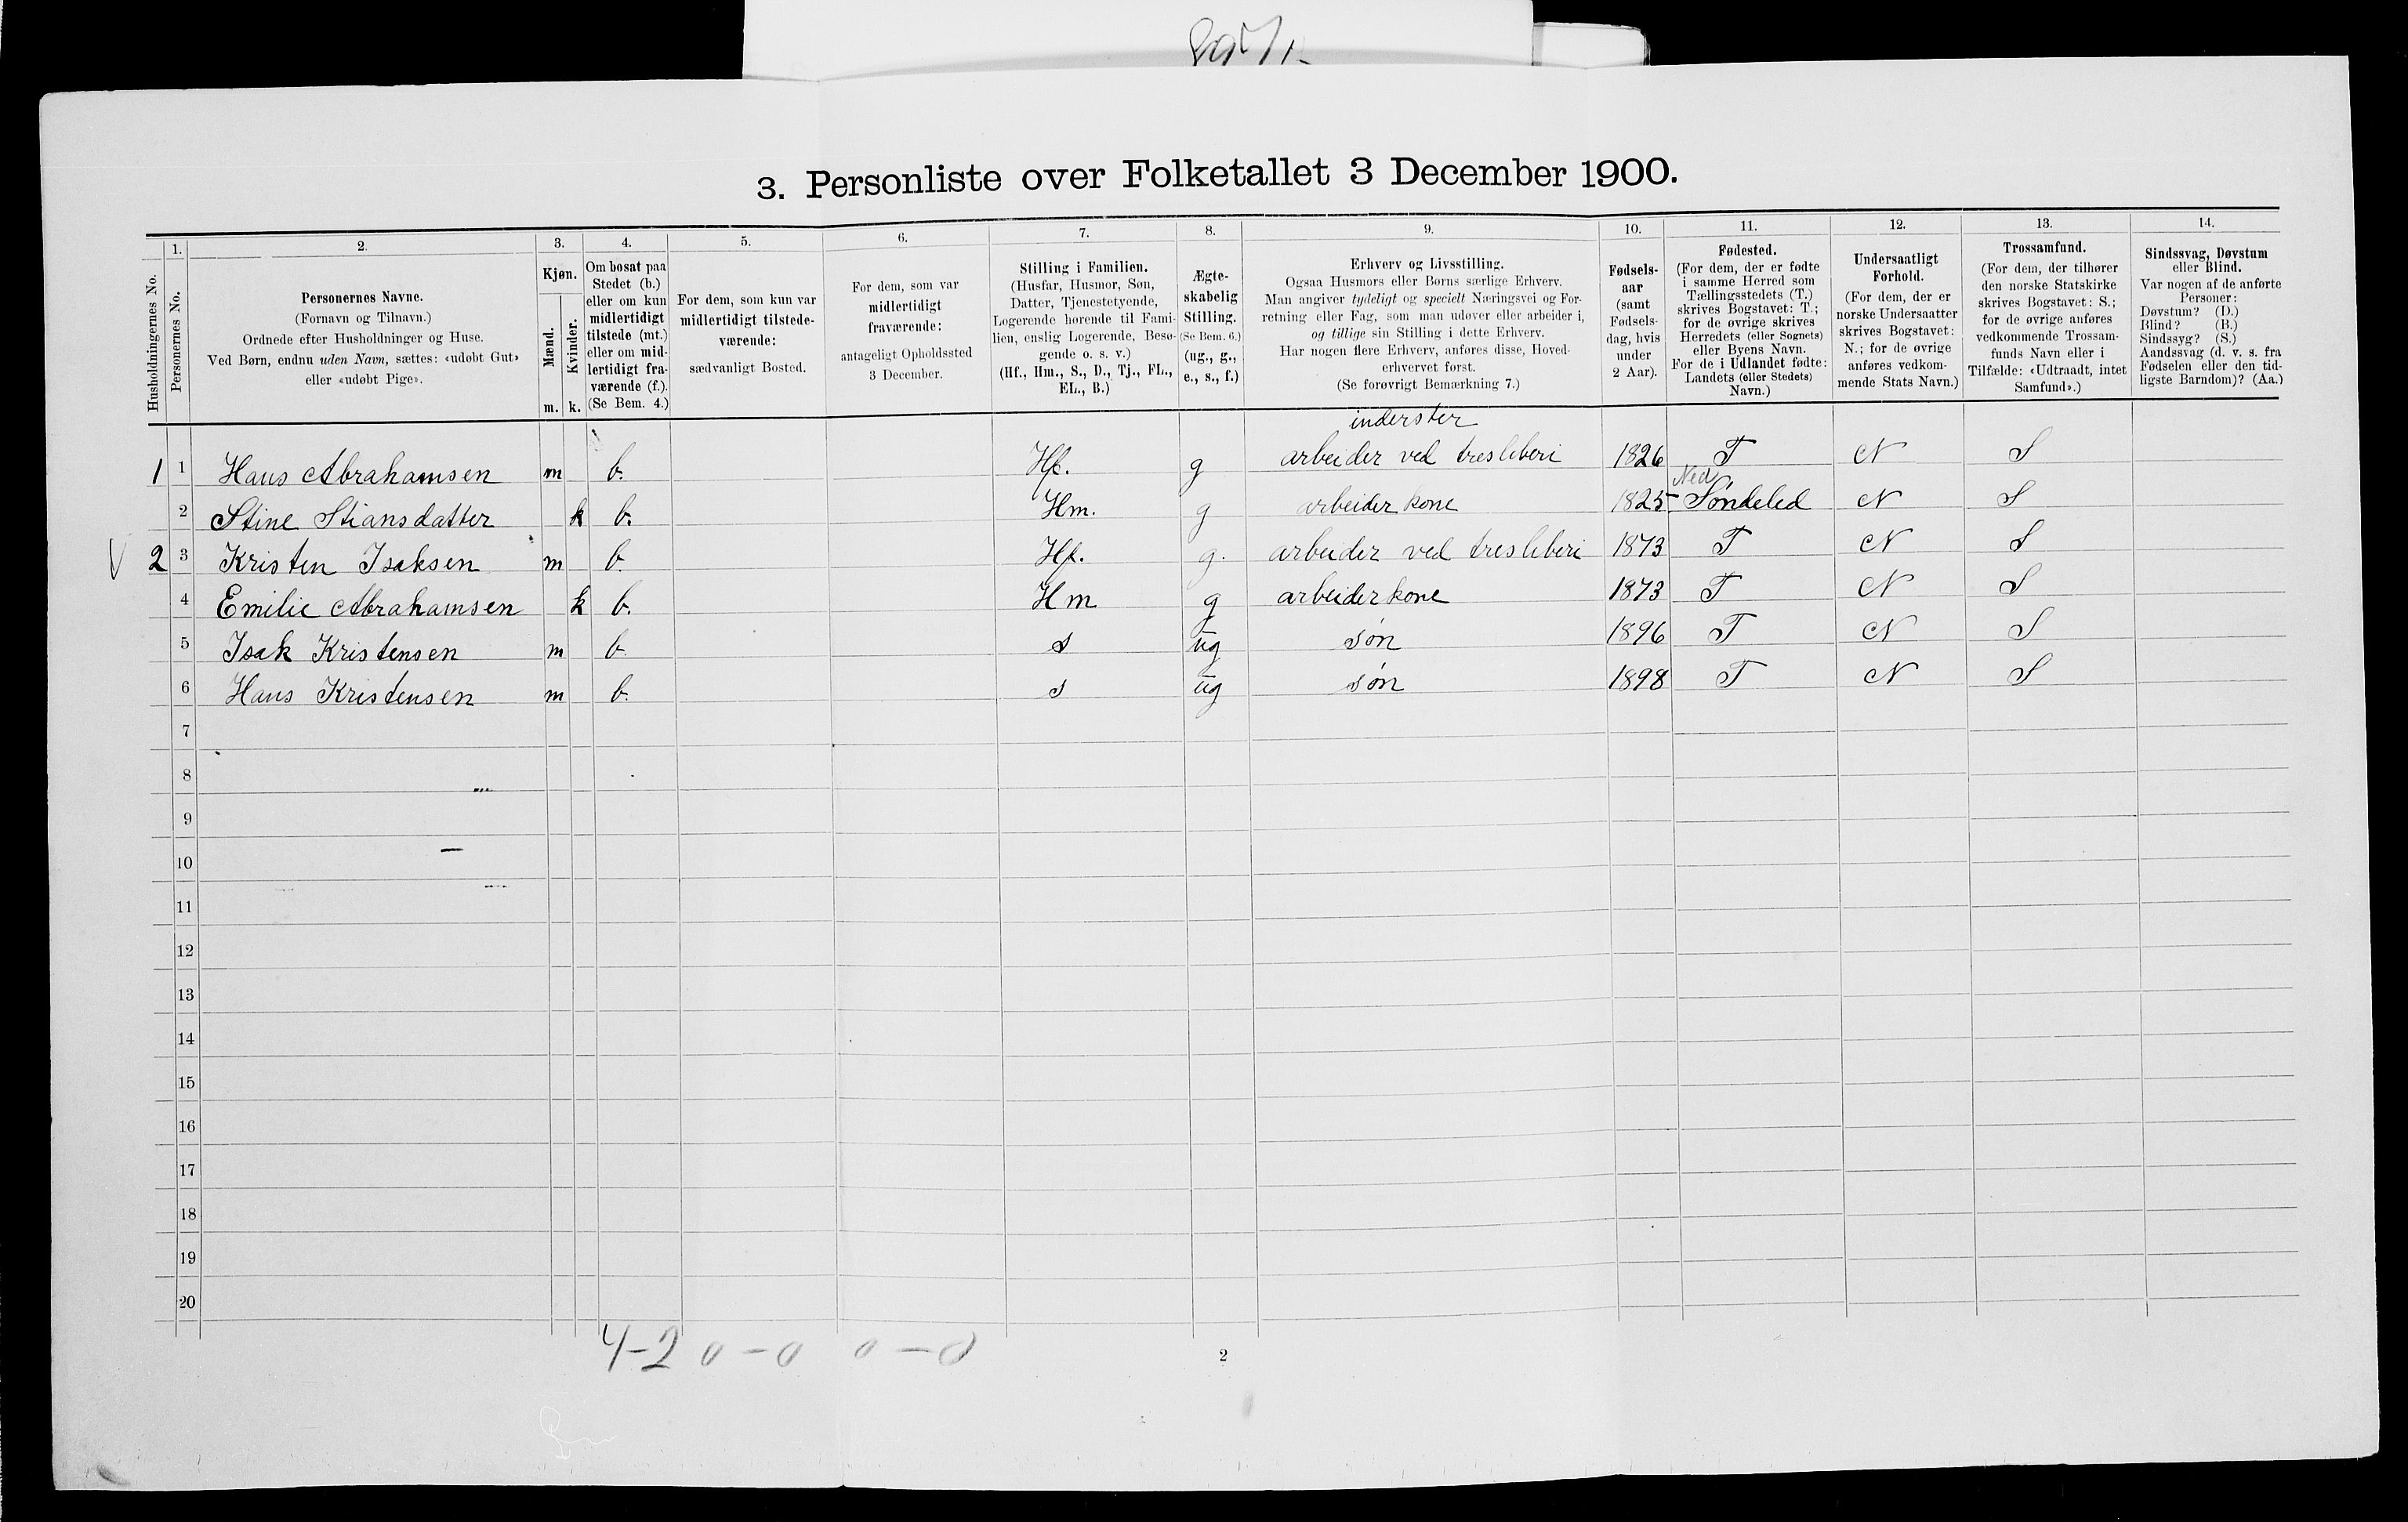 3. Personliste over Folketallet 3 December 1900.
1. 2. 3. 4. 5. 6. 7. 8. 9. 10. 11. 12. 13. 14.
Husholdningernes No.
Personernes No.
Personernes Navne.
(Fornavn og Tilnavn.)
Ordnede efter Husholdninger og Huse.
Ved Børn, endnu uden Navn, sættes: «udøbt Gut»
eller «udøbt Pige».
Kjøn.
Mænd.
Kvinder.
m. k.
Om bosat paa
Stedet (b.)
eller om kun
midlertidigt
tilstede (mt.)
eller om mid-
lertidigt fra-
værende (f.).
(Se Bem. 4.)
For dem, som kun var
midlertidigt tilstede-
værende:
sædvanligt Bosted.
For dem, som var
midlertidigt
fraværende:
antageligt Opholdssted
3 December.
Stilling i Familien.
(Husfar, Husmor, Søn,
Datter, Tjenestetyende,
Logerende hørende til Fami-
lien, enslig Logerende, Besø-
gende o. s. v.)
(Hf., Hm., S., D., Tj., FL.,
EL., B.)
Ægte-
skabelig
Stilling.
(Se Bem. 6.)
(ug., g.,
e., s., f.)
Erhverv og Livsstilling.
Ogsaa Husmors eller Børns særlige Erhverv.
Man angiver tydeligt og specielt Næringsvei og For-
retning eller Fag, som man udøver eller arbeider i,
og tillige sin Stilling i dette Erhverv.
Har nogen flere Erhverv, anføres disse, Hoved-
erhvervet først.
(Se forøvrigt Bemærkning 7.)
Fødsels-
aar
(samt
Fødsels-
dag, hvis
under
2 Aar).
Fødested.
(For dem, der er fødte
i samme Herred som
Tællingsstedets (T.)
skrives Bogstavet: T.;
for de øvrige skrives
Herredets (eller Sognets)
eller Byens Navn.
For de i Udlandet fødte:
Landets (eller Stedets)
Navn.)
Undersaatligt
Forhold.
(For dem, der er
norske Undersaatter
skrives Bogstavet:
N.; for de øvrige
anføres vedkom-
mende Stats Navn.)
Trossamfund.
(For dem, der tilhører
den norske Statskirke
skrives Bogstavet: S.;
for de øvrige anføres
vedkommende Trossam-
funds Navn eller i
Tilfælde: «Udtraadt, intet
Samfund».)
Sindssvag, Døvstum
eller Blind.
Var nogen af de anførte
Personer:
Døvstum? (D.)
Blind? (B.)
Sindssyg? (S.)
Aandssvag (d. v. s. fra
Fødselen eller den tid-
ligste Barndom)? (Aa.)
inderster
1 1 Hans Abrahamsen m b. Hf. g arbeider ved tresliberi 1826 T N S
Ned
2 Stine Stiansdatter k b. Hm. g arbeider kone 1825 Søndeled N S
2 3 Kristen Isaksen m b. Hf. g. arbeider ved tresliberi 1873 T N S
4 Emilie Abrahamsen k b. Hm g arbeiderkone 1873 T N S
5 Isak Kristensen m b. s ug søn 1896 T N S
6 Hans Kristensen m b. s ug søn 1898 T N S
7
8
9
10
11
12
13
14
15
16
17
18
19
20
4-2 0-0 0-0
2